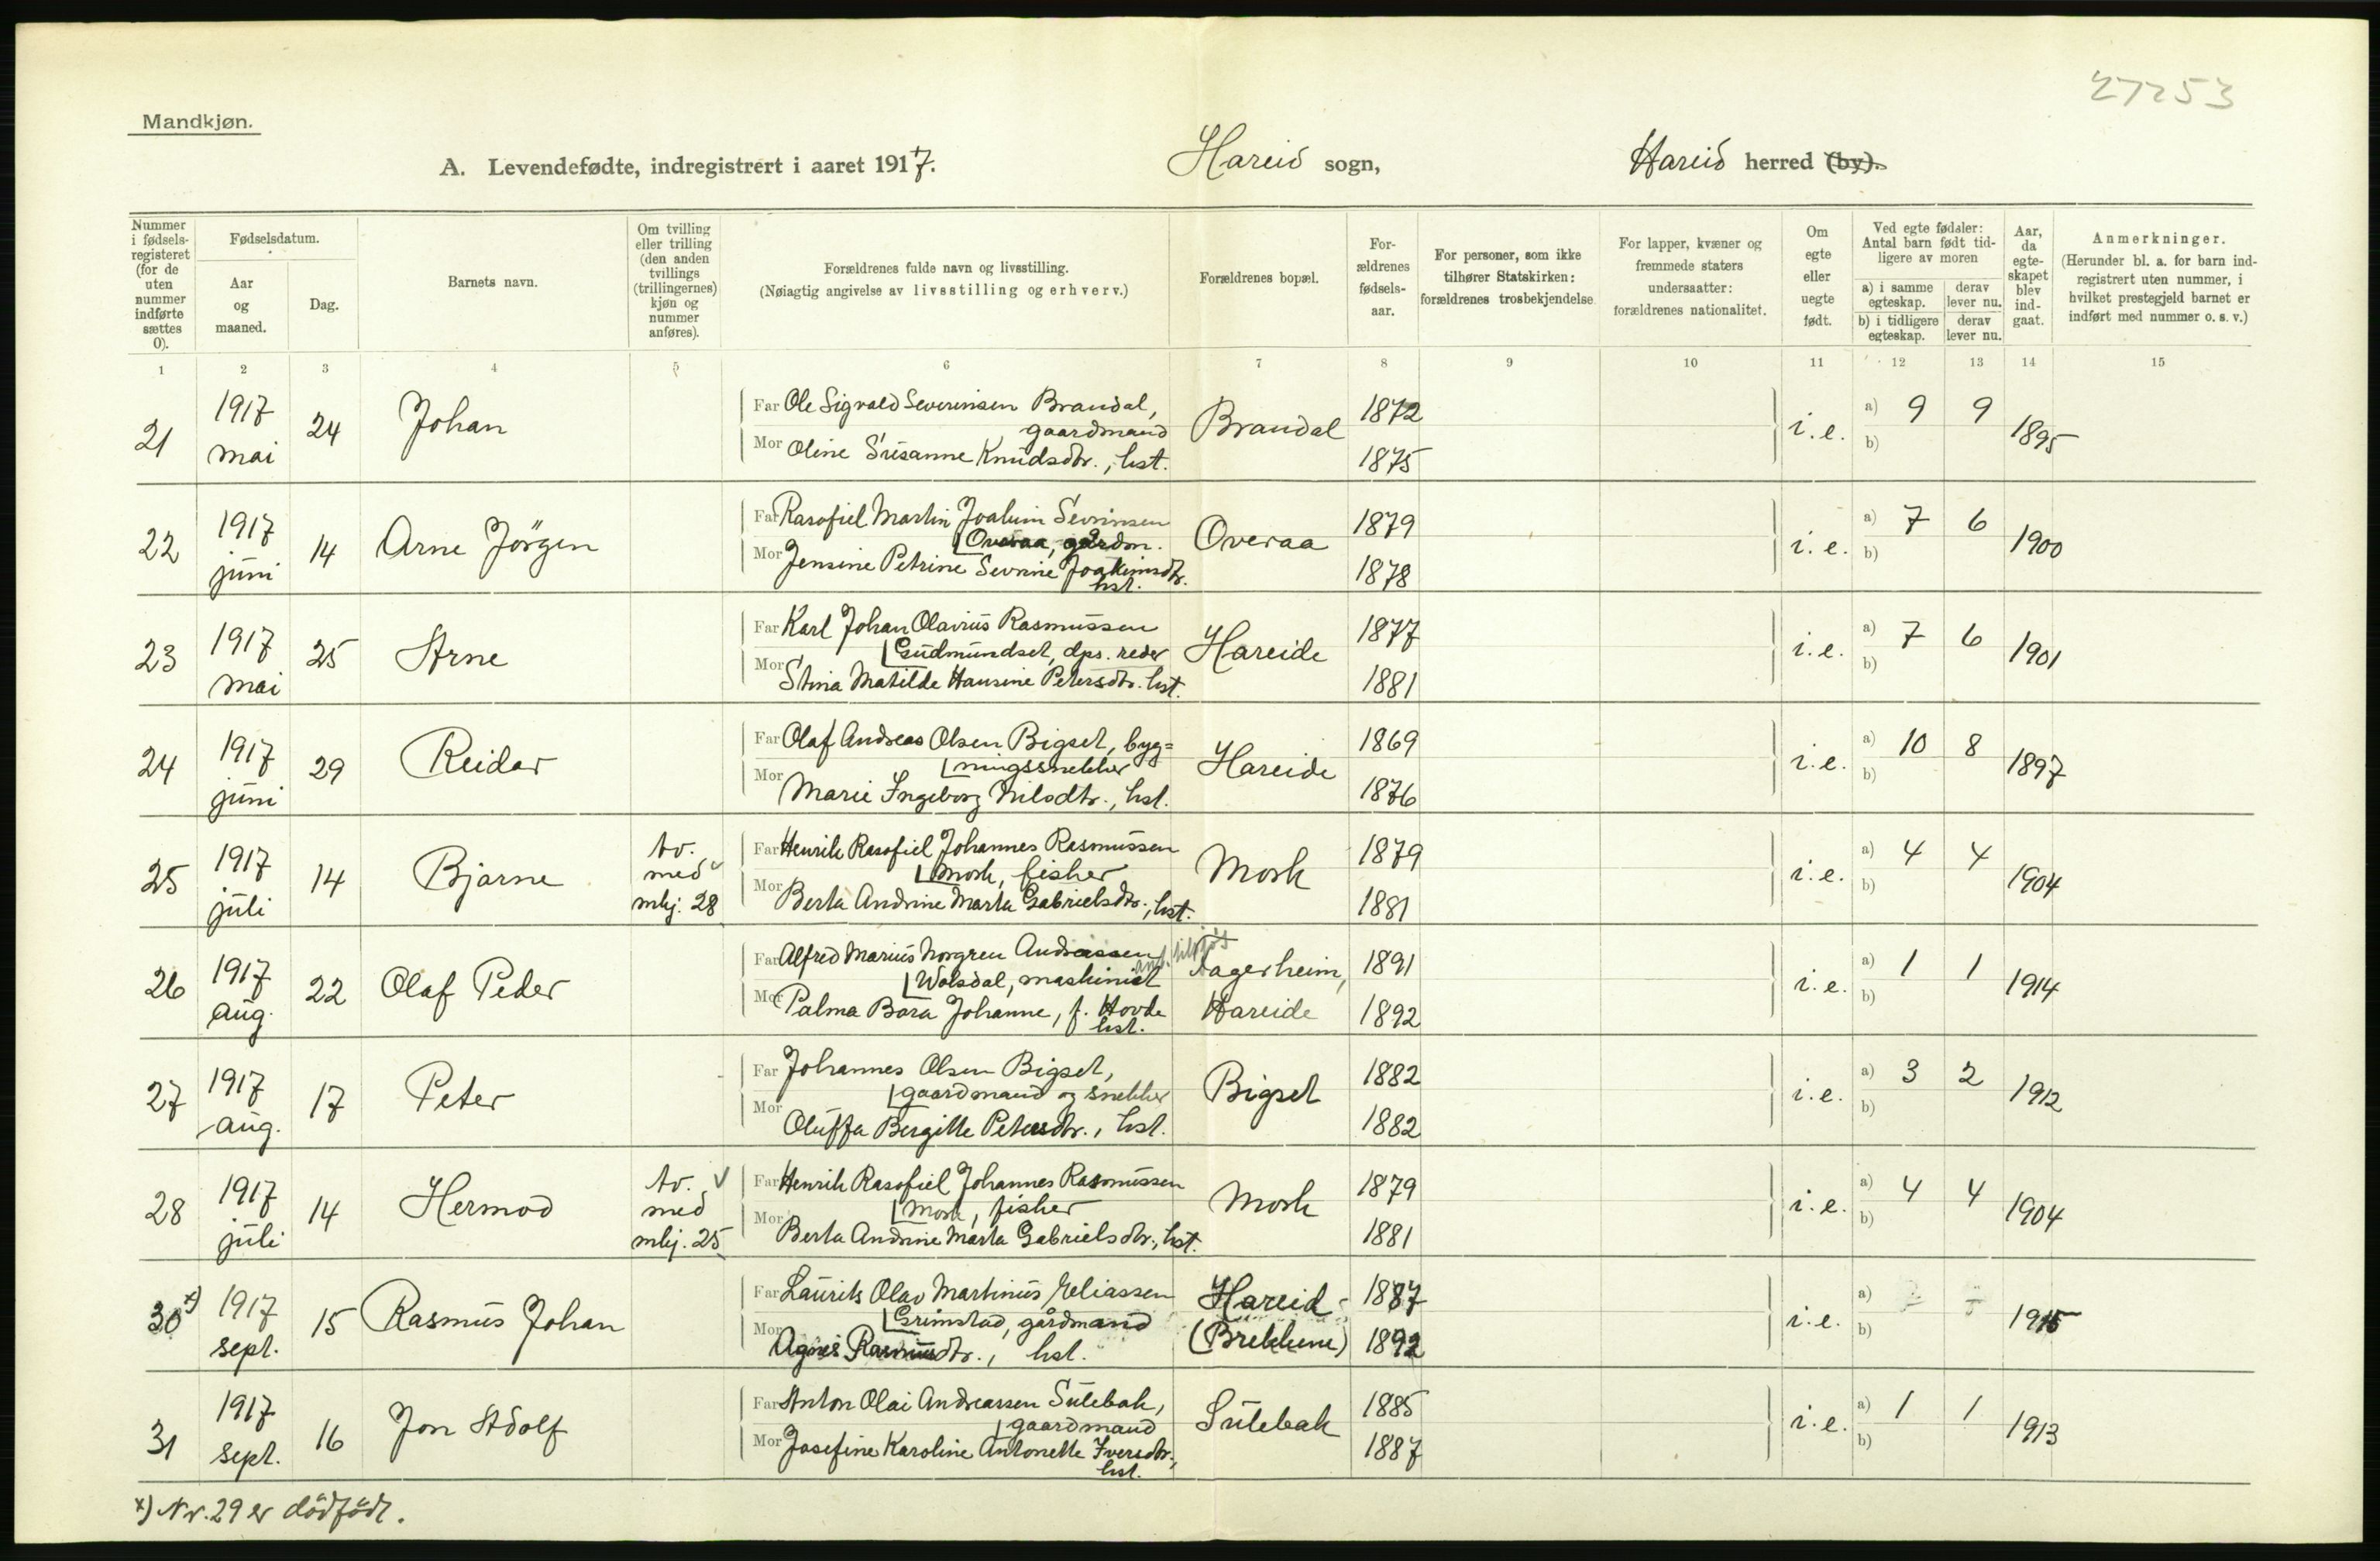 27253
Mandkjøn.
A. Levendefødte, indregistrert i aaret 1917. Hareid sogn, Hareid herred (by).
Nummer i fødsels-registeret (for de uten nummer indførte sættes 0).
Fødselsdatum.
Aar og maaned.
Dag.
Barnets navn.
Om tvilling eller trilling (den anden tvillings (trillingernes) kjøn og nummer anføres).
Forældrenes fulde navn og livsstilling.
(Nøiagtig angivelse av livsstilling og erhverv.)
Forældrenes bopæl.
For-ældrenes fødsels-aar.
For personer, som ikke tilhører Statskirken: forældrenes trosbekjendelse
For lapper, kvæner og fremmede staters undersaatter: forældrenes nationalitet.
Om egte eller uegte født.
Ved egte fødsler: Antal barn født tid-ligere av moren
a) i samme egteskap. derav lever nu.
b) i tidligere egteskap. derav lever nu.
Aar, da egte-skapet blev ind-gaat.
Anmerkninger.
(Herunder bl. a. for barn ind-registrert uten nummer, i hvilket prestegjeld barnet er indført med nummer o. s. v.)
1 2 3 4 5 6 7 8 9 10 11 12 13 14 15
21 1917 mai 24 Johan
Far Ole Sigvald Severinsen Brandal,
gaardmand
Mor Oline Susanne Knudsdtr., hst.
Brandal 1872 1875 i.e. a) 9 9 b) 1895
22 1917 juni 14 Arne Jörgen
Far Rasofiel Martin Joakim Sevrinsen
Overaa, gårdm.
Mor Jensine Petrine Sevrine Joakimsdtr.
hst.
Overaa 1879 1878 i.e. a) 7 6 b) 1900
23 1917 mai 25 Arne
Far Karl Johan Olavius Rasmussen
Gudmundset, dps. reder
Mor Stina Matilde Hansine Petersdtr. hst.
Hareide 1877 1881 i.e. a) 7 6 b) 1901
24 1917 juni 29 Reidar
Far Olaf Andreas Olsen Bigset, byg=
ningssnekker
Mor Marie Ingeborg Nilsdtr., hst.
Hareide 1869 1876 i.e. a) 10 8 b) 1897
25 1917 juli 14 Bjarne
tv. med mkj. 28
Far Henrik Rasofiel Johannes Rasmussen
Mork, fisker
Mor Berta Andrine Marta Gabrielsdtr., hst.
Mork 1879 1881 i.e. a) 4 4 b) 1904
26 1917 aug. 22 Olaf Peder
Far Alfred Marius Norgren Andreassen
Wolsdal, maskinist
Mor Palma Bara Johanne, f. Hovde
hst.
Fagerheim, Hareide 1891 1892 i.e. a) 1 1 b) 1914
27 1917 aug. 17 Peter
Far Johannes Olsen Bigset,
gaardmand og snekker
Mor Oluffa Bergitte Petersdtr., hst.
Bigset 1882 1882 i.e. a) 3 2 b) 1912
28 1917 juli 14 Hermod
tv. med mkj. 25
Far Henrik Rasofiel Johannes Rasmussen
Mork, fisker
Mor Berta Andrine Marta Gabrielsdtr., hst.
Mork 1879 1881 i.e. a) 4 4 b) 1904
30 x) 1917 sept. 15 Rasmus Johan
Far Laurits Olav Martinius Eliassen
Grimstad, gårdmand
Mor Agnes Rasmusdtr., hst.
Hareid (Brekkene) 1887 1892 i.e. a) b) 1915
31 1917 sept. 16 Jon Adolf
Far Anton Olai Andreassen Sulebak,
gaardmand
Mor Josefine Karoline Antonette Iversdtr.,
hst.
Sulebak 1885 1887 i.e. a) 1 1 b) 1913
x) Nr. 29 er dödfödt.